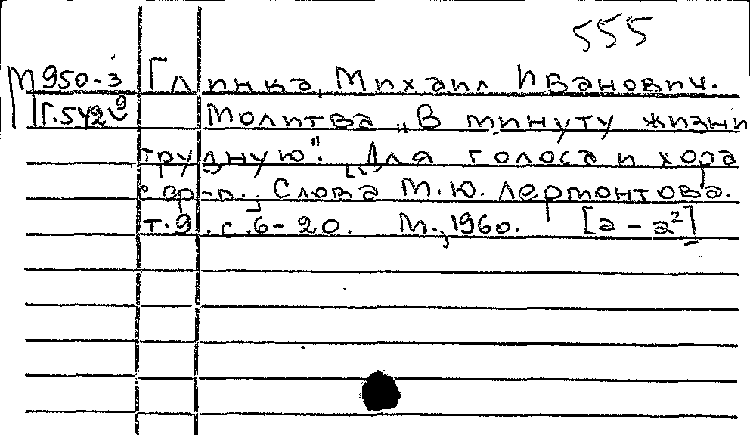 555
М950-3 Глинка, Михаил Иванович.
Г.542 Молитва „В минуту жизни
трудную". Для голоса и хора
с ор-п., Слова М.Ю. Лермонтова.
т.9. с.6-20. М., 1960. [а - а²]